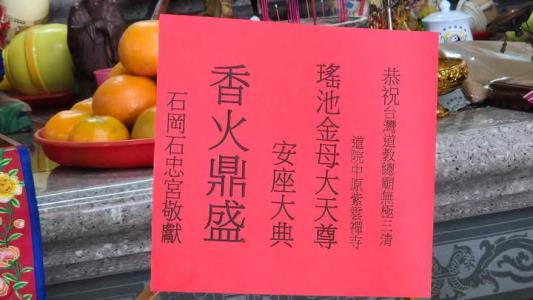 恭祝台灣道教總廟無極三清
道院中原紫雲禪寺
瑤池金母大天尊
安座大典
香火鼎盛
石岡石忠宮敬獻